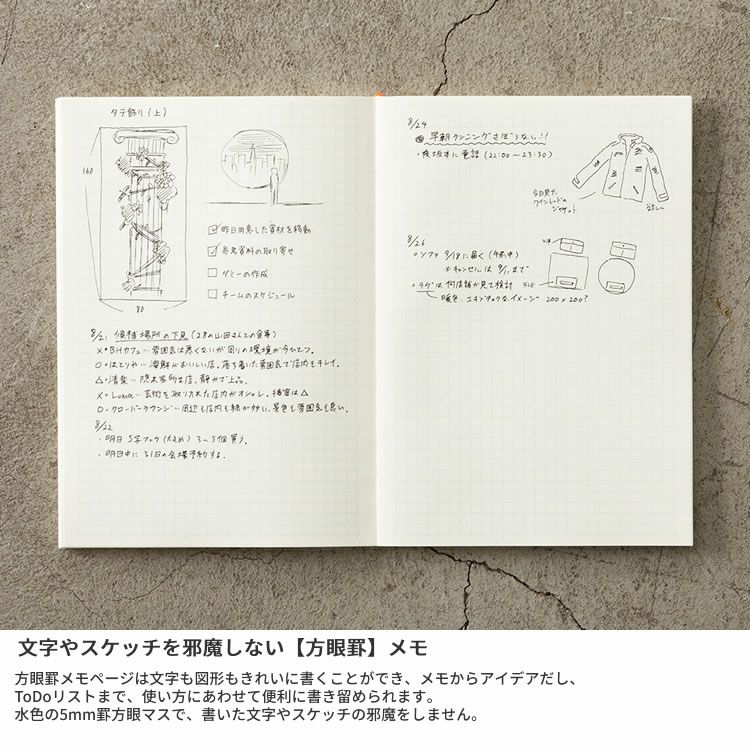 タテ飾り(上)
160
80
昨日用意した資材を移動
参考資料の取り寄せ
ダミーの作成
チームのスケジュール
8/21 候補場所の下見 (28の山田さんとの食事)
×・BHカフェ…雰囲気は悪くないが周りの環境が今いち。
○・はとりや…海鮮がおいしい店。落ち着いた雰囲気で店内もキレイ。
△・清楽…隠れ家的な店。静かで上品。
×・Lohaa…芸術を取り入れた店内がオシャレ。接客は△
○・クローバーラウンジ…周辺も店内も緑が多い。景色も雰囲気も良い。
8/22
・明日 S字フック(大きめ) 3〜5個買う。
・明日中に31日の会場予約する。
8/24
早朝ランニングさぼらない!!
・夜坂本に電話 (21:00〜23:30)
今日見た
ワインレッドの
ジャケット
欲しい
8/26
○ソファ 9/18に届く(午前中)
※キャンセルは 9/1まで
○ラグは何店舗か見て検討
暖色、エキゾチックなイメージ 200×200?
ソファ
テレビ
文字やスケッチを邪魔しない【方眼罫】メモ
方眼罫メモページは文字も図形もきれいに書くことができ、メモからアイデアだし、
ToDoリストまで、使い方にあわせて便利に書き留められます。
水色の5mm罫方眼マスで、書いた文字やスケッチの邪魔をしません。